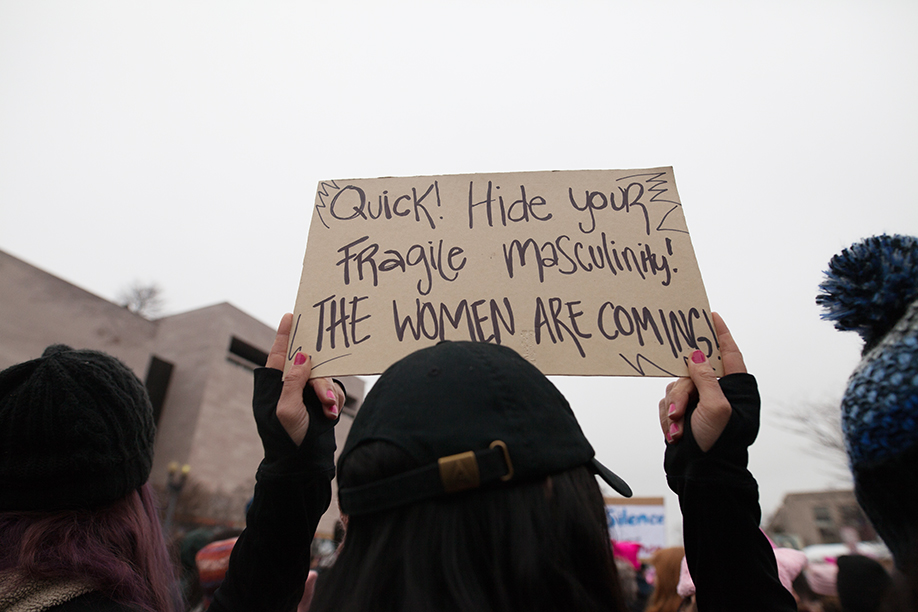 Quick! Hide your
Fragile masculinity!
THE WOMEN ARE COMING!
Silence